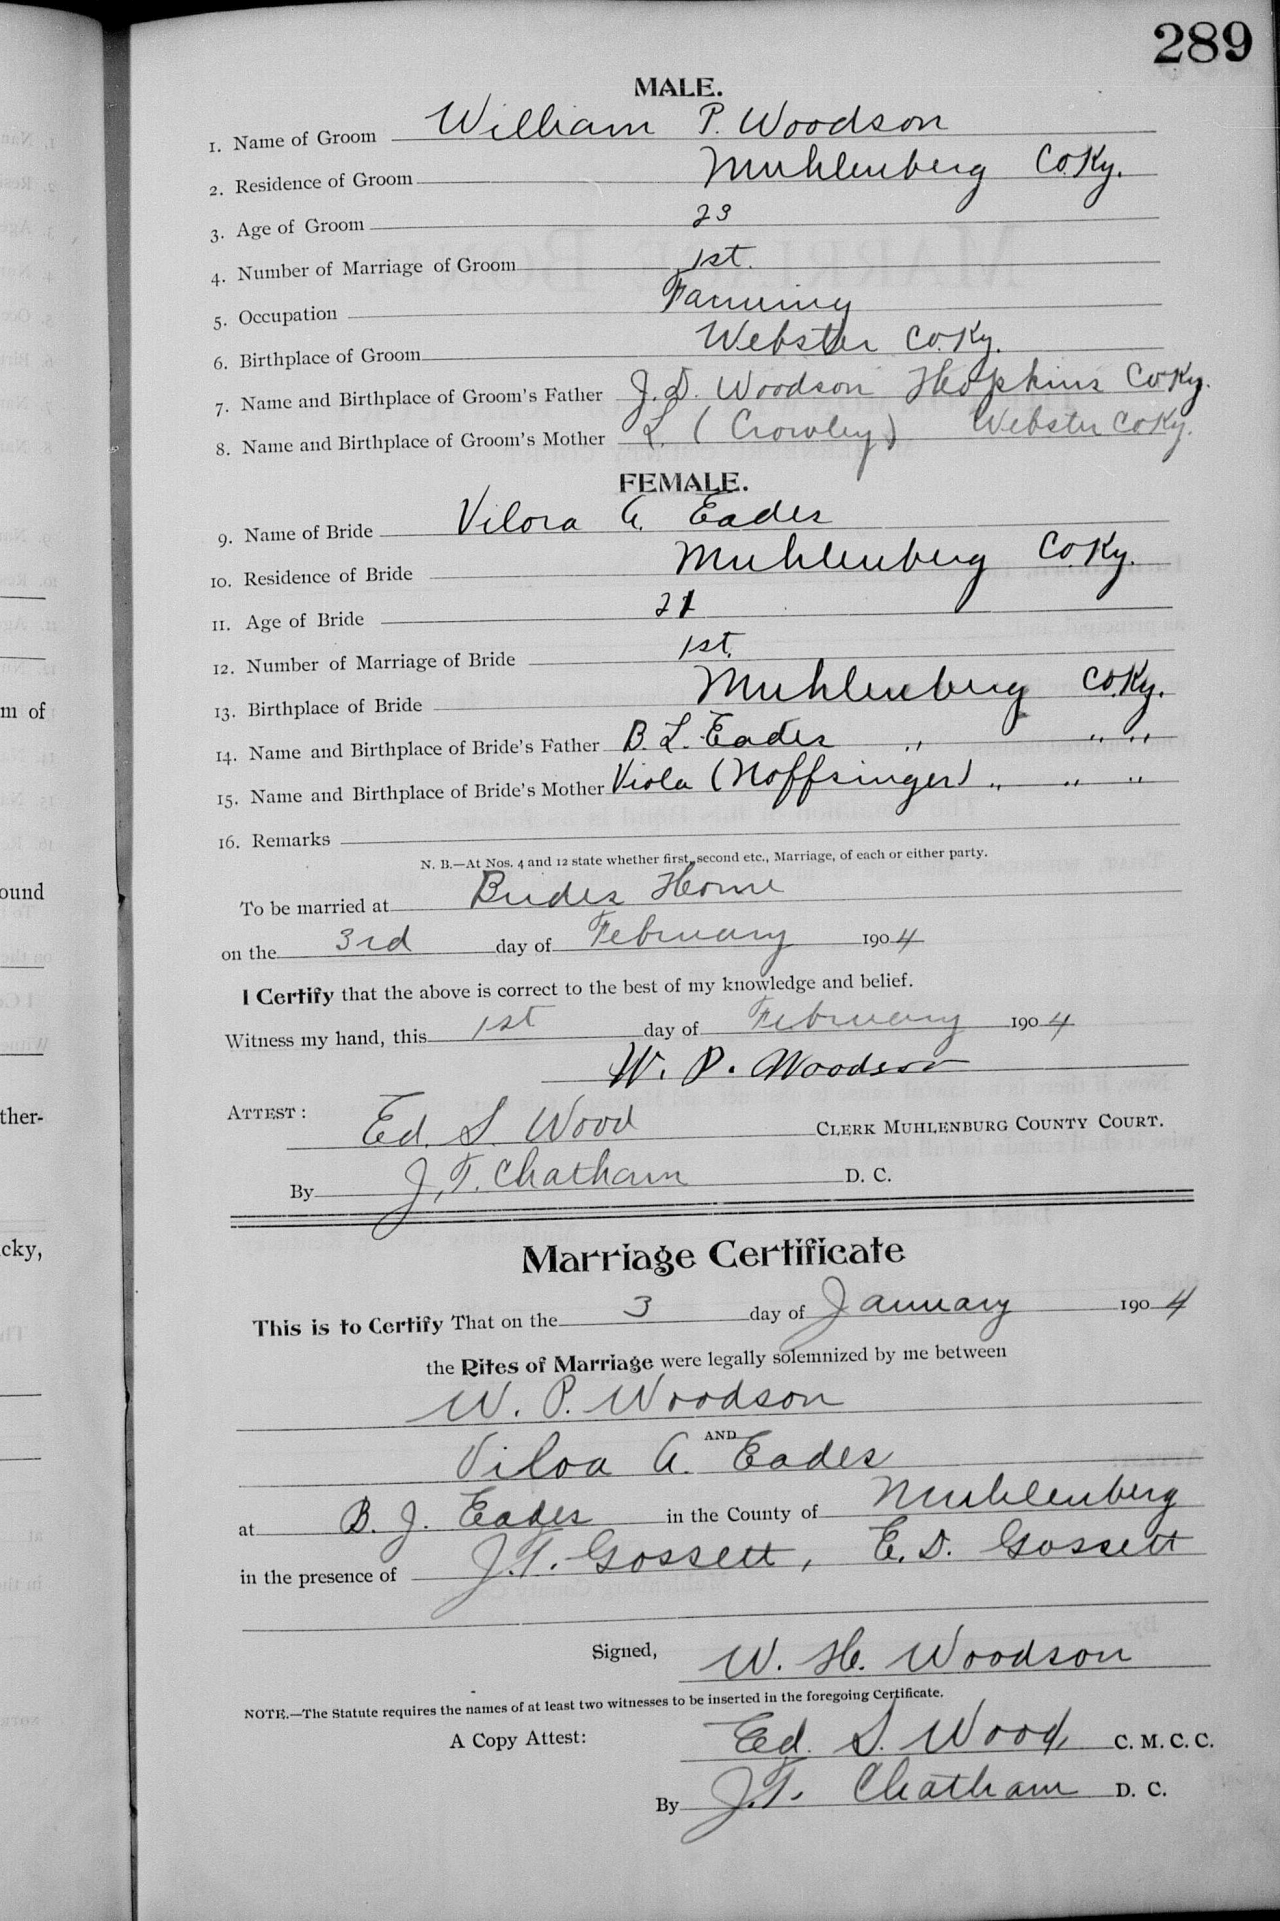 289
MALE.
1. Name of Groom William P. Woodson
2. Residence of Groom Muhlenberg Co. Ky.
3. Age of Groom 23
4. Number of Marriage of Groom 1st.
5. Occupation Farming
6. Birthplace of Groom Webster Co. Ky.
7. Name and Birthplace of Groom's Father J. D. Woodson Hopkins Co Ky.
8. Name and Birthplace of Groom's Mother L. (Crowley) Webster Co Ky.
FEMALE.
9. Name of Bride Vilora A. Eades
10. Residence of Bride Muhlenberg Co. Ky.
11. Age of Bride 21
12. Number of Marriage of Bride 1st.
13. Birthplace of Bride Muhlenberg Co. Ky.
14. Name and Birthplace of Bride's Father B. L. Eades " " "
15. Name and Birthplace of Bride's Mother Viola (Noffsinger) " " "
16. Remarks
N. B.—At Nos. 4 and 12 state whether first, second etc., Marriage, of each or either party.
To be married at Brides Home
on the 3rd day of February 1904
I Certify that the above is correct to the best of my knowledge and belief.
Witness my hand, this 1st day of February 1904
W. P. Woodson
ATTEST:
Ed. S. Wood CLERK MUHLENBURG COUNTY COURT.
By J. T. Chatham D. C.
Marriage Certificate
This is to Certify That on the 3 day of January 1904
the Rites of Marriage were legally solemnized by me between
W. P. Woodson
AND
Viloa A. Eades
at B. J. Eades in the County of Muhlenberg
in the presence of J. T. Gossett, E. D. Gossett
Signed, W. H. Woodson
NOTE.—The Statute requires the names of at least two witnesses to be inserted in the foregoing Certificate.
A Copy Attest: Ed. S. Wood, C. M. C. C.
By J. T. Chatham D. C.
m of
ound
ther-
cky,